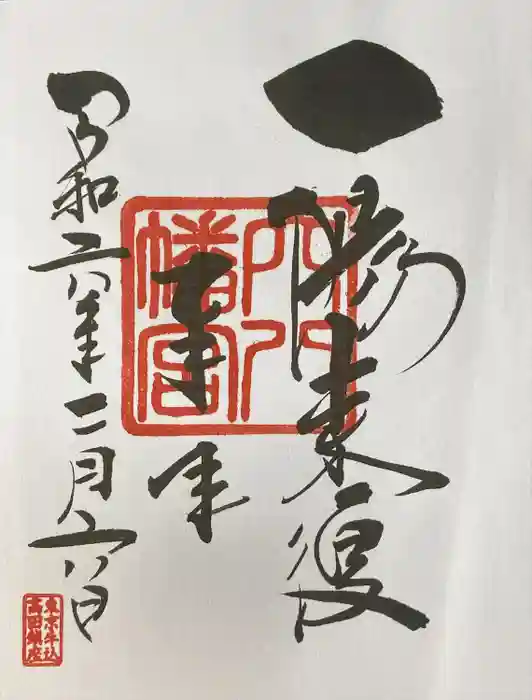 一陽来復
奉拝
令和六年二月六日
穴八幡宮
東京牛込
高田鎮座